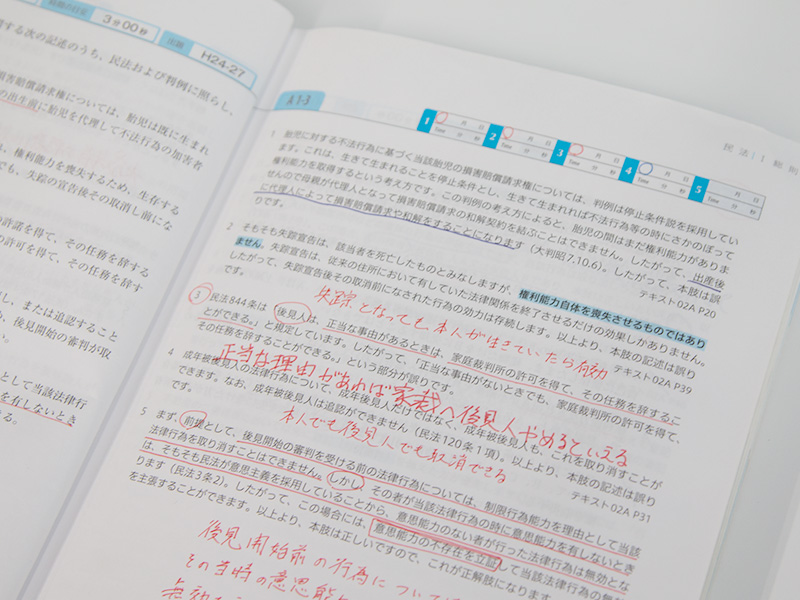 3分00秒
出題
H24-27
する次の記述のうち、民法および判例に照らし、
損害賠償請求権については、胎児は既に生まれ
の出生前に胎児を代理して不法行為の加害者
は、権利能力を喪失するため、生存する
でも、失踪の宣告後その取消し前にな
許諾を得て、その任務を辞する
の許可を得て、その任務を辞す
し、または追認すること
め、後見開始の審判が取
として当該法律行
を有しないとき
民法 1 総則
A1-3
1 月 日 Time 分 秒
2 月 日 Time 分 秒
3 月 日 Time 分 秒
4 月 日 Time 分 秒
5 月 日 Time 分 秒
1 胎児に対する不法行為に基づく当該胎児の損害賠償請求権については、判例は停止条件説を採用してい
ます。これは、生きて生まれることを停止条件とし、生きて生まれれば不法行為等の時にさかのぼって
権利能力を取得するという考え方です。この判例の考え方によると、胎児の間はまだ権利能力がありま
せんので母親が代理人となって損害賠償請求の和解契約を結ぶことはできません。したがって、出産後
に代理人によって損害賠償請求や和解をすることになります(大判昭7.10.6)。したがって、本肢は誤
りです。
テキスト02A P20
2 そもそも失踪宣告は、該当者を死亡したものとみなしますが、権利能力自体を喪失させるものではあり
ません。失踪宣告は、従来の住所において有していた法律関係を終了させるだけの効果しかありません。
したがって、失踪宣告後その取消前になされた行為の効力は存続します。以上より、本肢の記述は誤り
です。
テキスト02A P39
失踪となっても本人が生きていたら有効
3 民法844条は「後見人は、正当な事由があるときは、家庭裁判所の許可を得て、その任務を辞するこ
とができる。」と規定しています。したがって、「正当な事由がないときでも、家庭裁判所の許可を得て、
その任務を辞することができる。」という部分が誤りです。
正当な理由があれば家裁へ後見人やめるといえる
4 成年被後見人の法律行為について、成年後見人だけではなく、成年被後見人も、これを取り消すことが
できます。なお、成年被後見人は追認ができません(民法120条1項)。以上より、本肢の記述は誤り
です。
テキスト02A P31
本人でも後見人でも取消できる
5 まず、前提として、後見開始の審判を受ける前の法律行為については、制限行為能力を理由として当該
法律行為を取り消すことはできません。しかし、その者が当該法律行為の時に意思能力を有しないとき
は、そもそも民法が意思主義を採用していることから、意思能力のない者が行った法律行為は無効とな
ります(民法3条2)。したがって、この場合には、意思能力の不存在を立証して当該法律行為の無効
を主張することができます。以上より、本肢は正しいですので、これが正解肢になります。
後見開始前の行為につい
その当時の意思能
無効